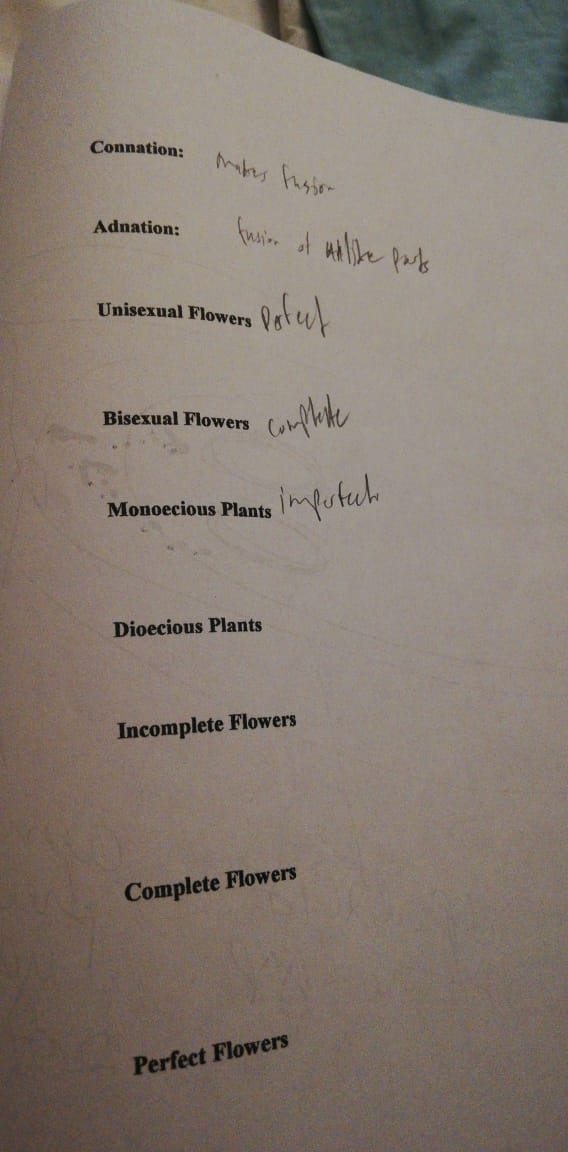 Connation: makes fusion
Adnation: fusion of unlike parts
Unisexual Flowers Perfect
Bisexual Flowers complete
Monoecious Plants imperfect
Dioecious Plants
Incomplete Flowers
Complete Flowers
Perfect Flowers